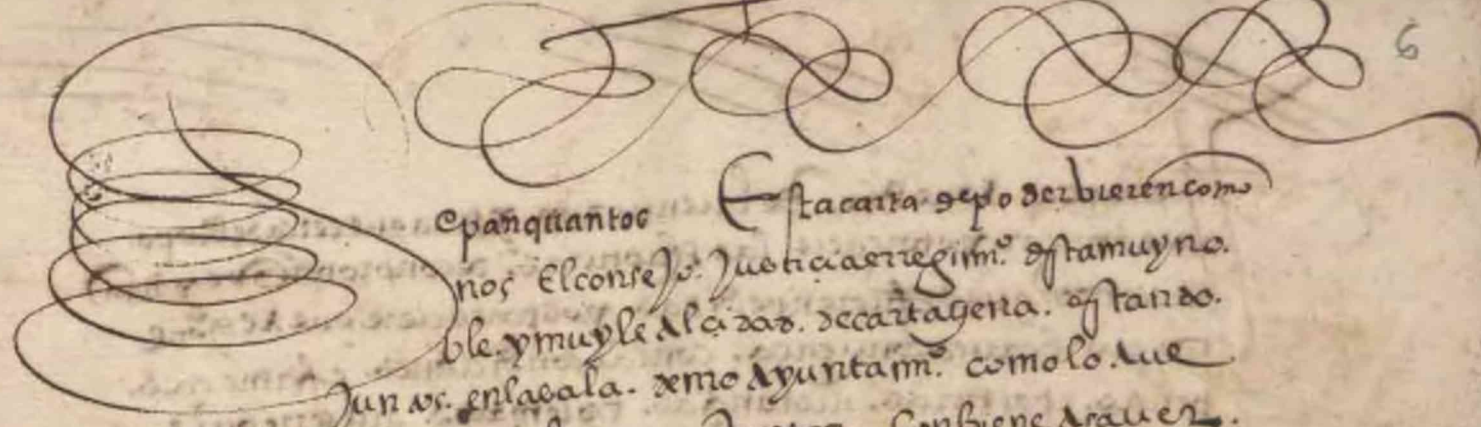 6
Sepan quantos Esta carta de poder bieren como
nos El consejo. Justicia e rregimi.º desta muy no.
ble. y muy leal ciudad. de cartagena. estando.
Juntos. en la sala. de nro Ayuntami.º como lo. Aue
conbiene a sauer.